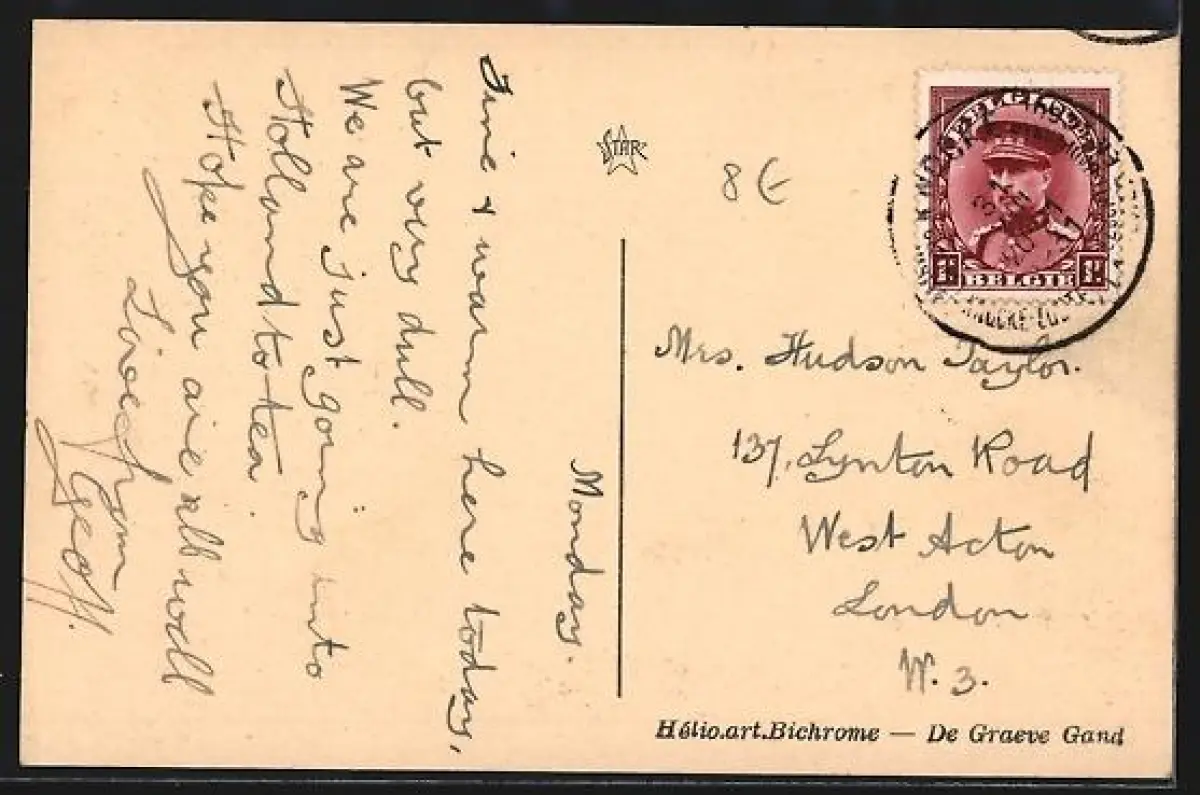 Monday.
Fine & warm here today,
but very dull.
We are just going into
Holland to tea.
Hope you are all well
Love from
Geoff.
STAR
8 €
BELGIE
Mrs. Hudson Taylor.
137, Lynton Road
West Acton
London
W. 3.
Hélio.art.Bichrome — De Graeve Gand